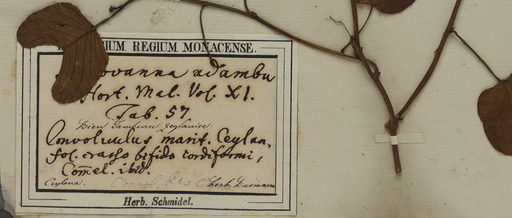 IUM REGIUM MONACENSE.
ovanna adambu
Hort. Mal. Vol. XI.
Tab. 57.
Convolvulus marit. Ceylan.
fol. crasso bifido cordiformi,
Comel. ibid.
Ceylona. Herb.
Herb. Schmidel.